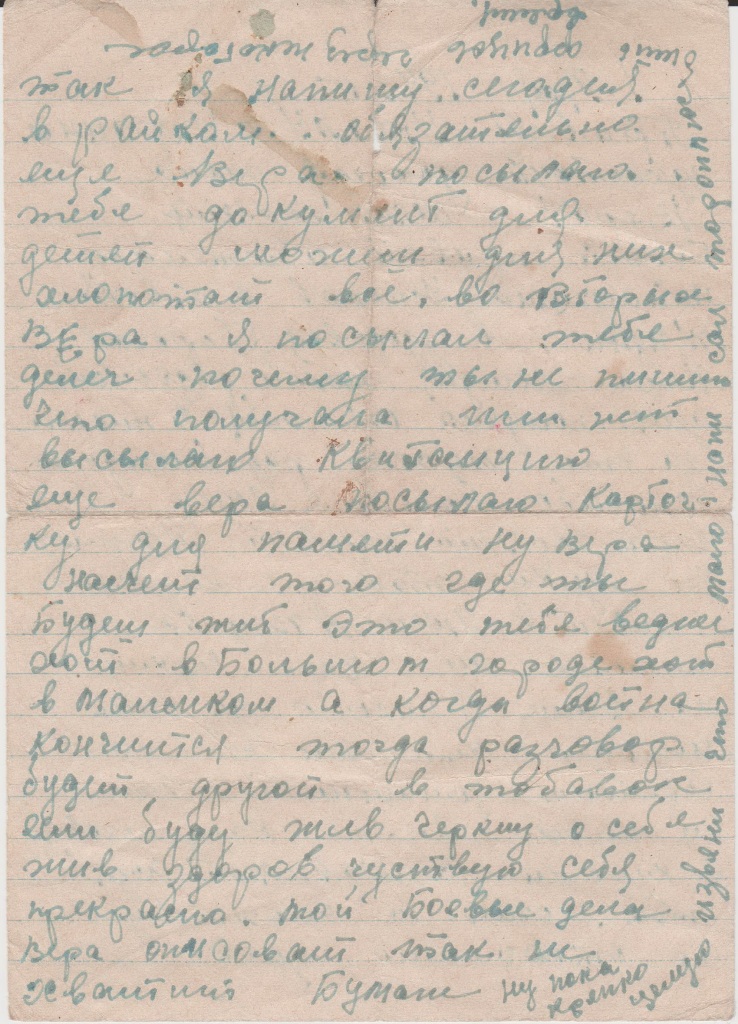 так я напишу сегодня
в райкам. обязательно
еще Вера. посылаю.
тебе докумит для.
детей можиш для них
хлопотат всё. во вторых
Вера. я посылал тебе
денег почему ты не пишиш
что получала или нет
высылаю. Квитанцию
еще вера посылаю карточ-
ку для памяти ну вера
насчет того где ты
Будеш жит Это тебе ведней
хот в Большом городе хот
в малиньком а когда война
кончится тогда разговор
будет другой в тобавок
если буду жив Черкну о себе
жив здоров чуствую себя
прекрасно. мои Боевые дела
Вера описоват так не
хватит Бумаги
ну пока
крепко
целую
извени что мало напи сал тороплюс